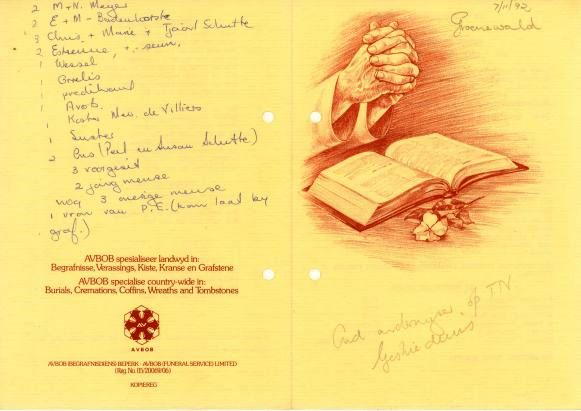 2 M + N. Meyer
2 E + M - Badenhorste
3 Chris, + Marie + Tjaart Schutte
2 Estienne, + - seun,
1 Wessel
1 Grelis
1 predikant
1 Avob.
1 Koster Mev. de Villiers
1 Suster
2 Bus (Paul en Susan Schutte)
3 voorgesit
2 jong mense
nog 3 mense
1 vrou van P.E. (kom laat by
graf.)
AVBOB spesialiseer landwyd in:
Begrafnisse, Verassings, Kiste, Kranse en Grafstene
AVBOB specialise country-wide in:
Burials, Cremations, Coffins, Wreaths and Tombstones
AV
AVBOB
AVBOB (BEGRAFNISDIENS) BEPERK - AVBOB (FUNERAL SERVICE) LIMITED
KOPIEREG
7/11/92
Groenewald
Oud onderwyser op TN
Geskiedenis